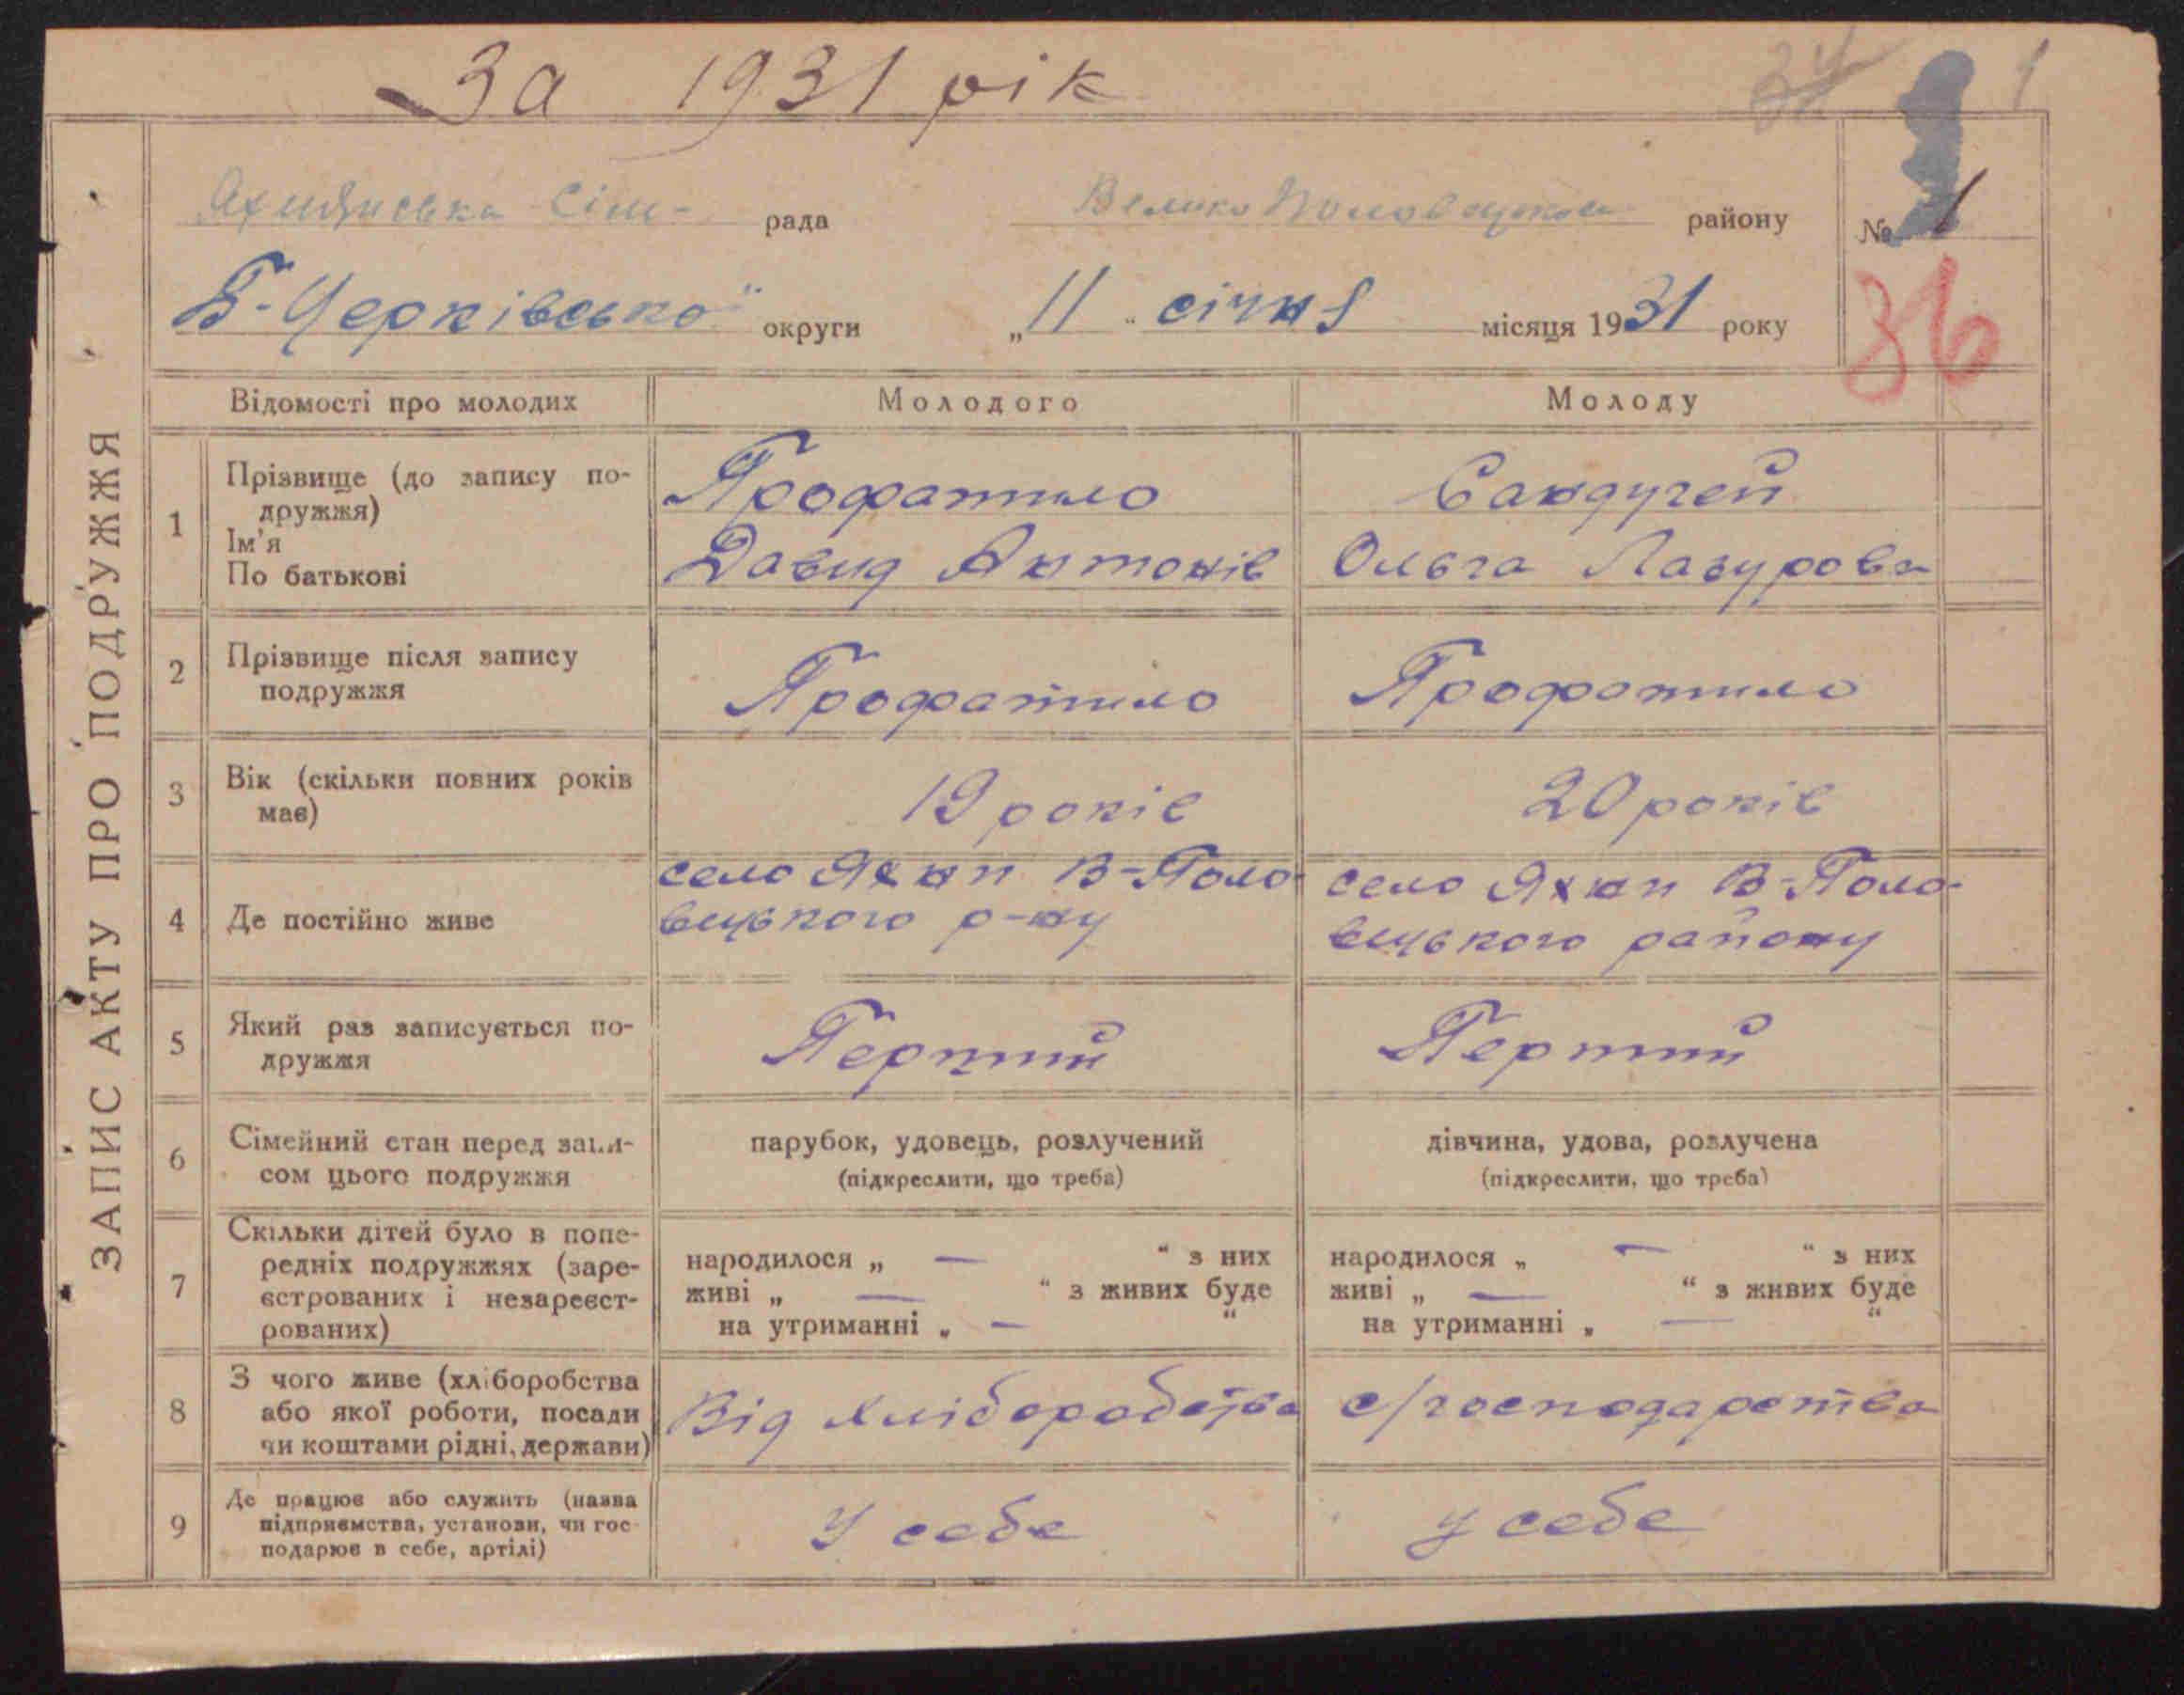 За 1931 рік
1
Яхнянська Сіль- рада Велико Половецького району № 1
Б-Церківської округи „11“ січня місяця 1931 року
36
ЗАПИС АКТУ ПРО ПОДРУЖЖЯ
Відомості про молодих Молодого Молоду
1 Прізвище (до запису по-
дружжя)
Ім'я
По батькові
Профатило
Давид Антонів
Сандугей
Ольга Лазурова
2 Прізвище після запису
подружжя
Профатило Профатило
3 Вік (скільки повних років
має)
19 років 20 років
4 Де постійно живе
село Яхни В-Поло-
вецького р-ну
село Яхни В-Поло-
вецького району
5 Який раз записується по-
дружжя
Перший Перший
6 Сімейний стан перед запи-
сом цього подружжя
парубок, удовець, розлучений
(підкреслити, що треба)
дівчина, удова, розлучена
(підкреслити, що треба)
7 Скільки дітей було в попе-
редніх подружжях (заре-
єстрованих і незареєст-
рованих)
народилося „ — “ з них
живі „ — “ з живих буде
на утриманні „ — “
народилося „ — “ з них
живі „ — “ з живих буде
на утриманні „ — “
8 З чого живе (хліборобства
або якої роботи, посади
чи коштами рідні, держави)
Від хліборобства с/господарства
9 Де працює або служить (назва
підприємства, установи, чи гос-
подарює в себе, артілі)
У себе у себе